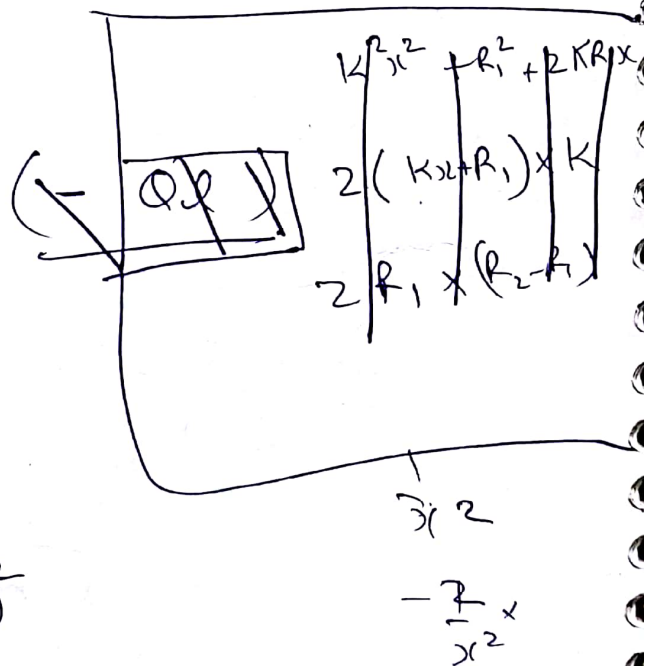 K²x² + R₁² + 2KR₁x
(- Ql )
2 ( Kx+R₁) x K
2 R₁ x (R₂-R₁)
2
x²